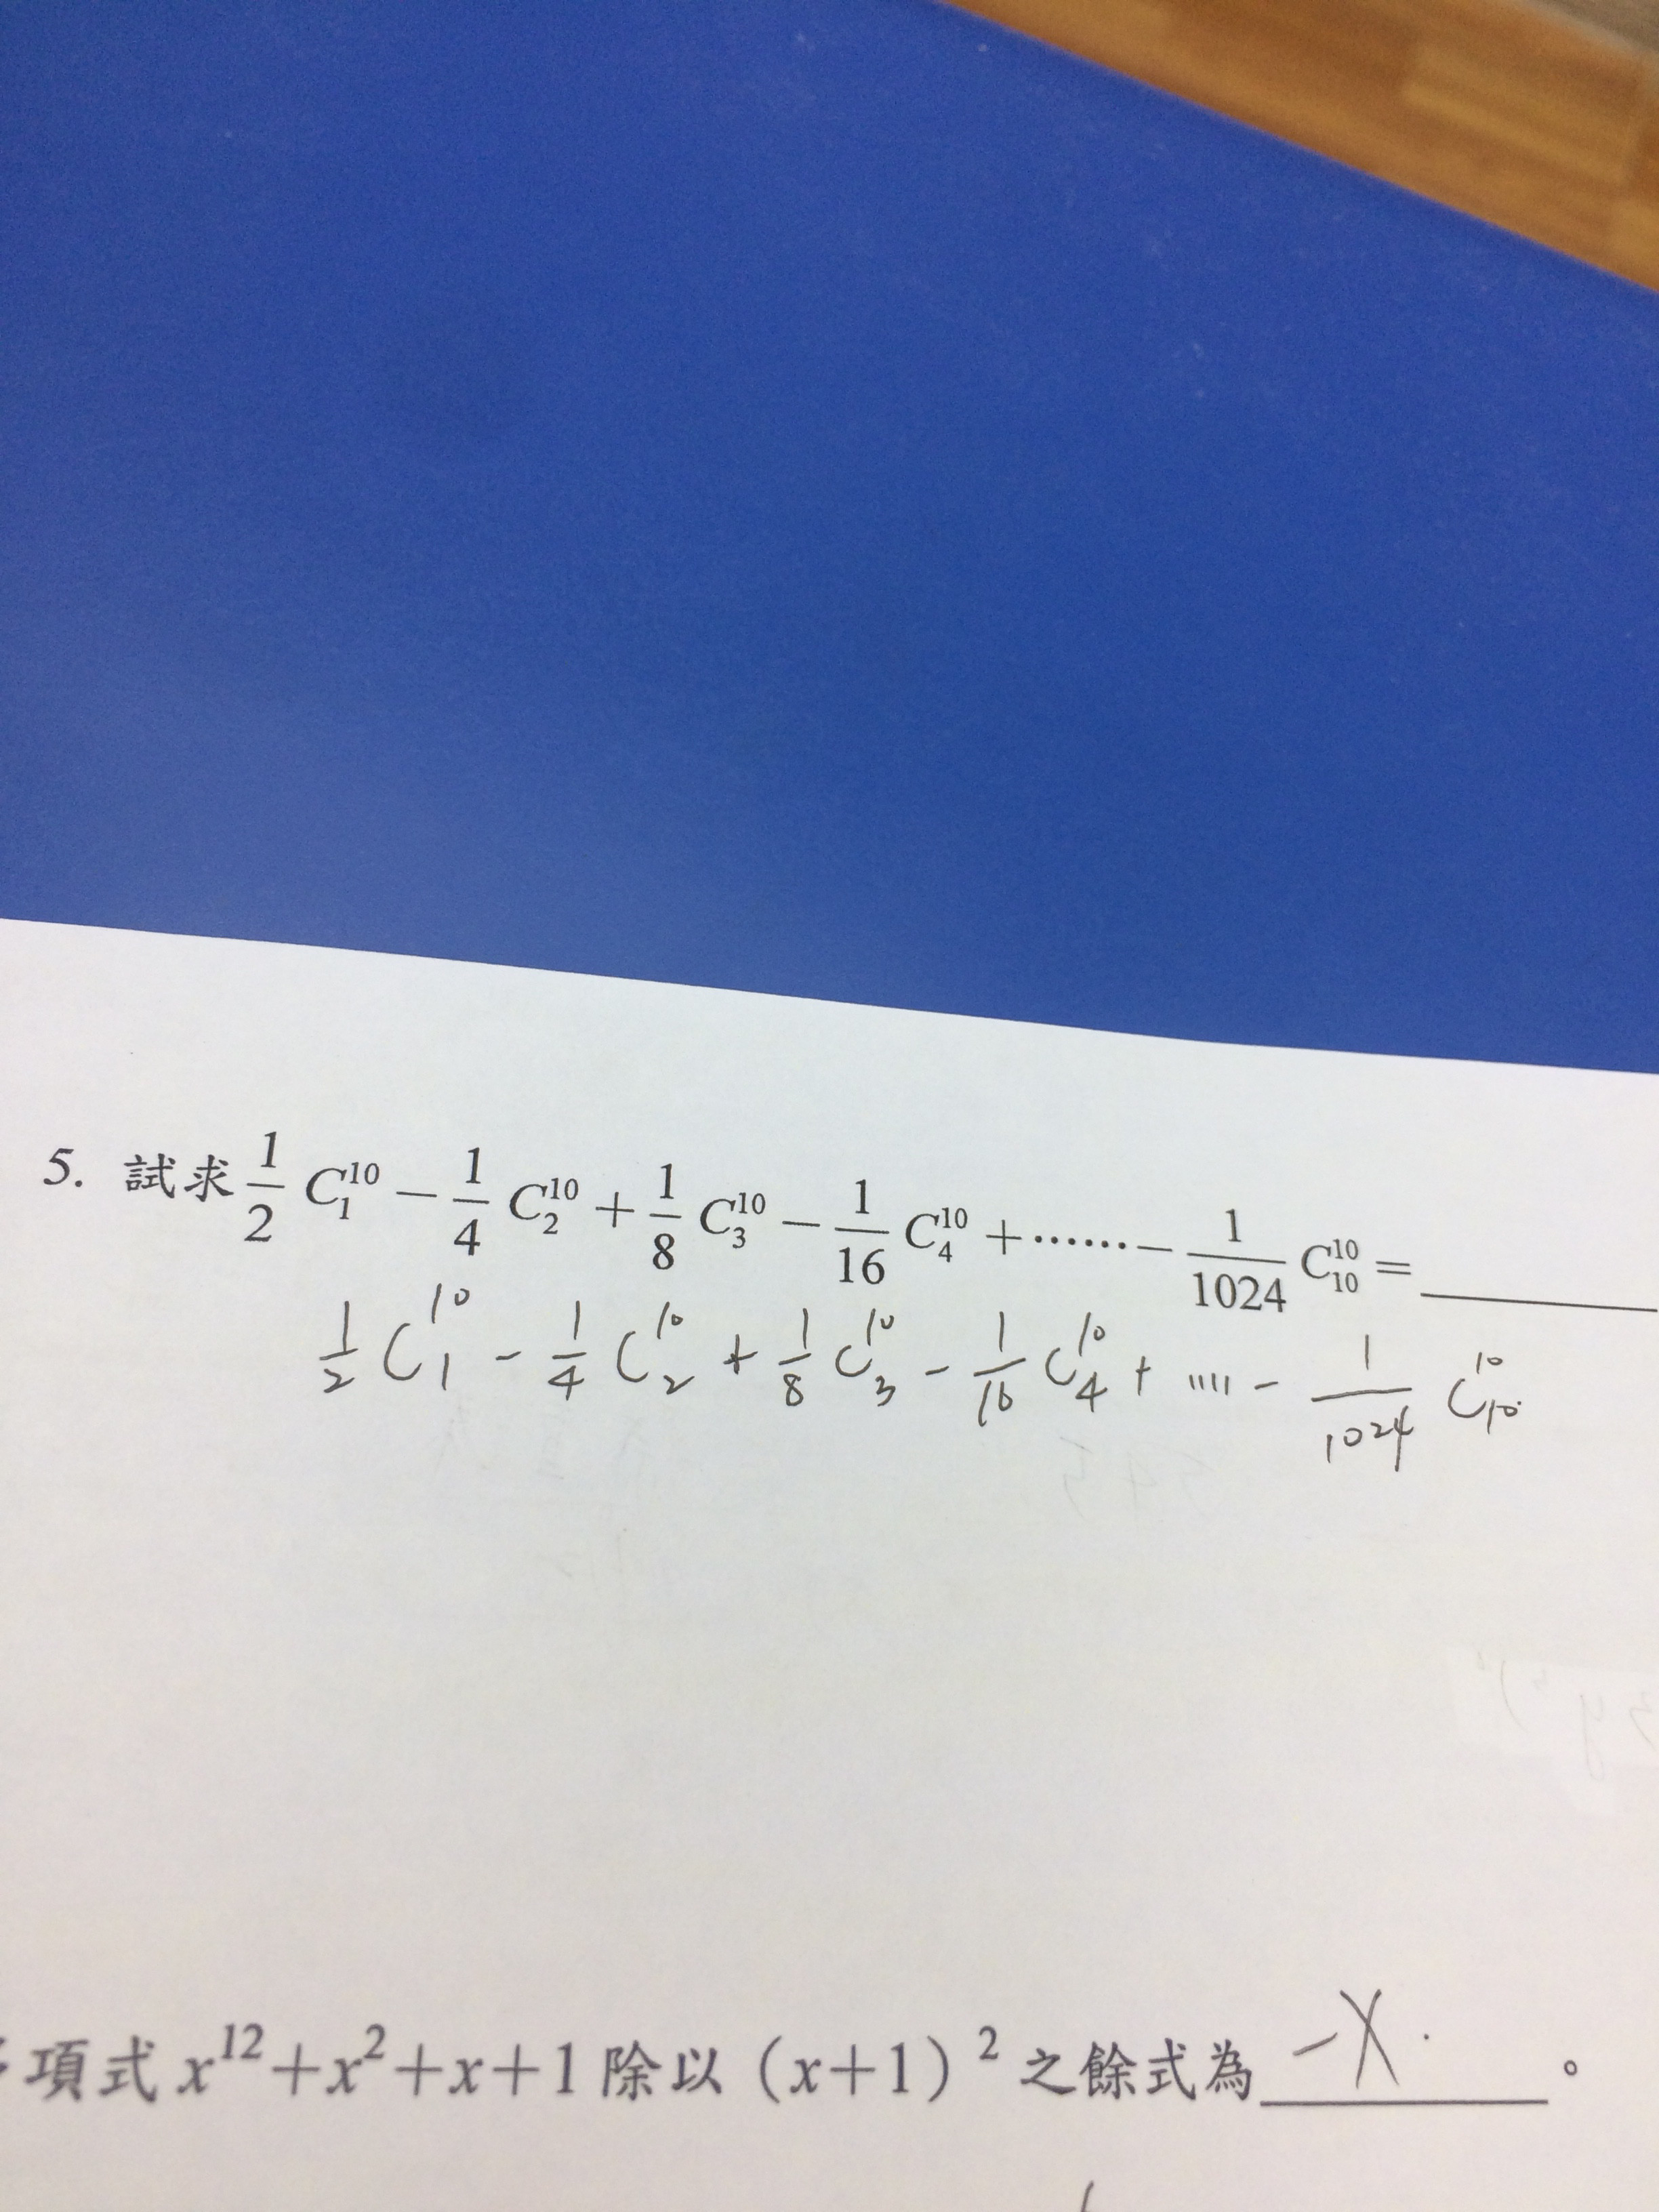 5. 試求 1/2 C₁¹⁰ − 1/4 C₂¹⁰ + 1/8 C₃¹⁰ − 1/16 C₄¹⁰ + ⋯⋯ − 1/1024 C₁₀¹⁰ = ______
1/2 C₁¹⁰ − 1/4 C₂¹⁰ + 1/8 C₃¹⁰ − 1/16 C₄¹⁰ + ⋯⋯ − 1/1024 C₁₀¹⁰
項式 x¹²+x²+x+1 除以（x+1）² 之餘式為 −x 。